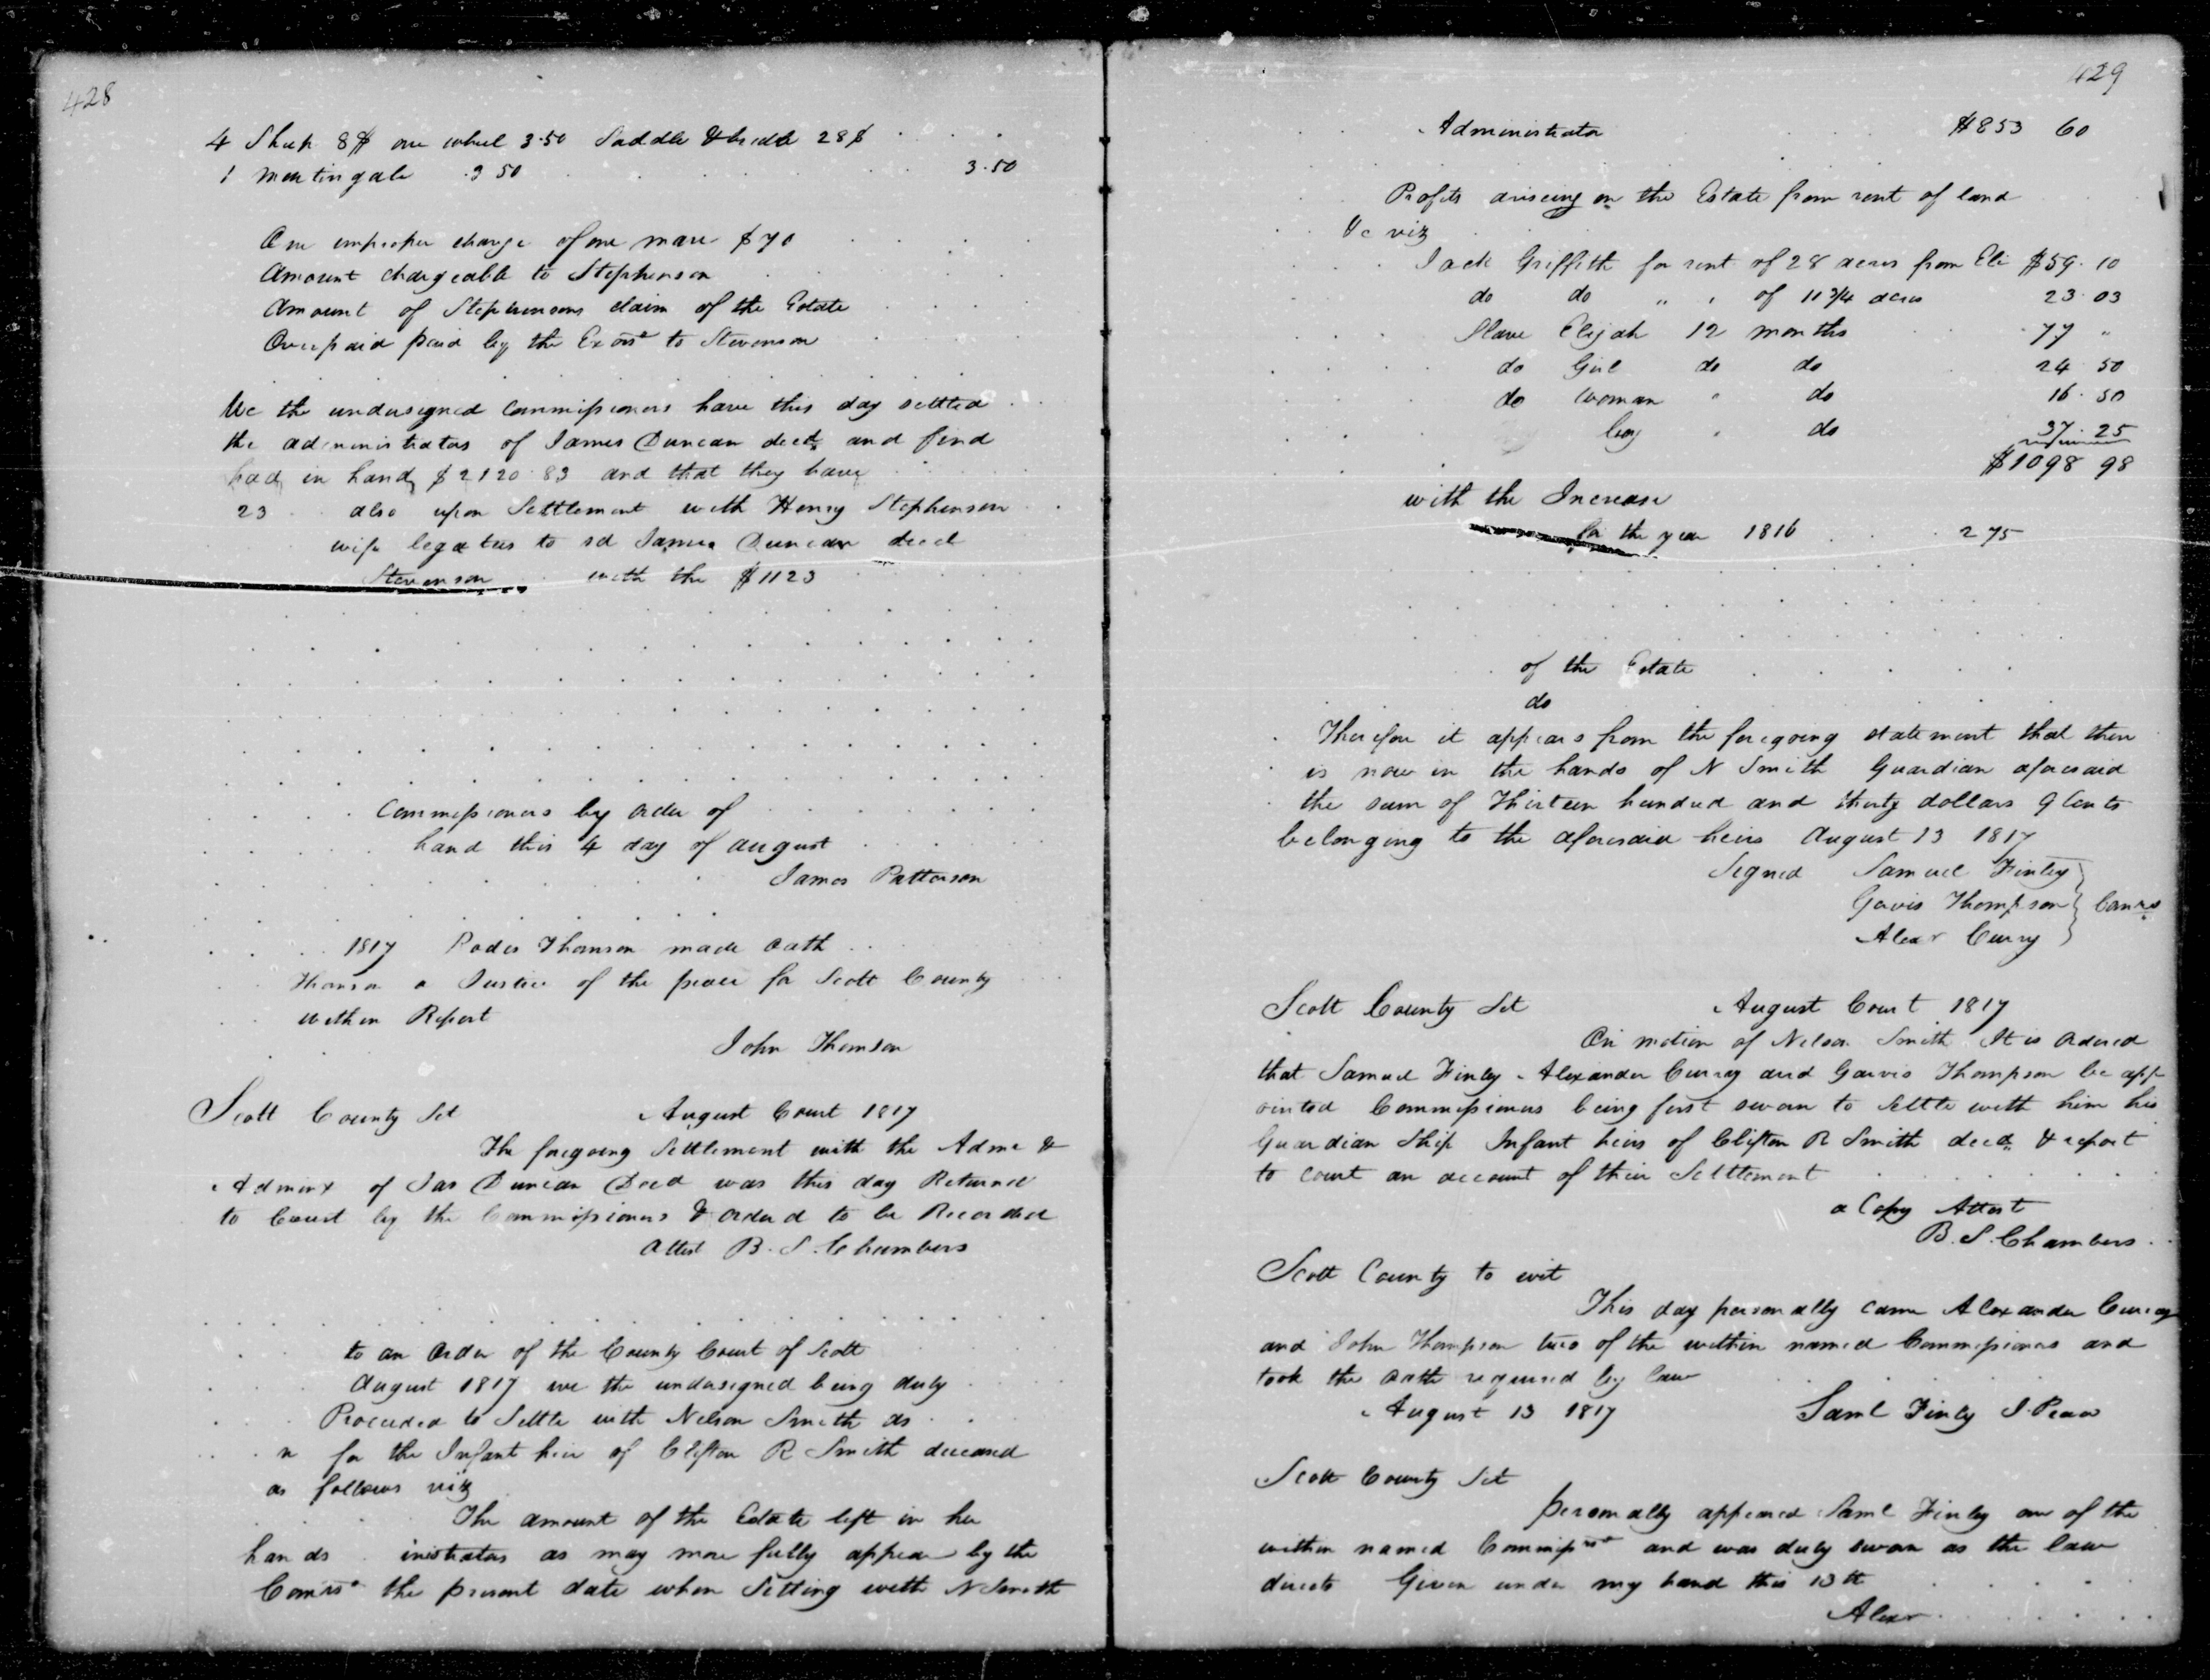 428
4 Sheep 8$ one wheel 3.50 Saddle & bridle 28$
1 Martingale .350 3.50
One improper charge of one mare $70
Amount chargeable to Stephenson
Amount of Stephensons claim of the Estate
Overpaid paid by the Exors to Stevenson
We the undersigned Commissioners have this day settled
the administrators of James Duncan decd and find
had in hand $2120.83 and that they have
23 also upon Settlement with Henry Stephenson
wife legatees to sd James Duncan decd
Stevenson with the $1123
Commissioners by order of
hand this 4 day of august
James Patterson
1817 Rodes Thomson made oath
Thomson a Justice of the peace for Scott County
within Report
John Thomson
Scott County Sct August Court 1817
The foregoing Settlement with the Admr &
Adminx of Jas Duncan Decd was this day Returned
to Court by the Commissioners & ordered to be Recorded
Attest B. S. Chambers
to an order of the County Court of Scott
August 1817 we the undersigned being duly
Proceeded to Settle with Nelson Smith as
n for the Infant heir of Clifton R Smith deceased
as follows viz
The amount of the Estate left in her
hands inistrators as may more fully appear by the
Comrs the present date when Setting with N Smith
429
Administrator $853 60
Profits ariseing on the Estate from rent of land
&c viz
Jack Griffith for rent of 28 acres from Eli $59.10
do do " " of 11 3/4 acres 23.03
Slave Elijah 12 months 77 "
do Girl do do 24.50
do Woman " do 16.50
boy " do 37.25
$1098 98
with the Increase
for the year 1816 275
of the Estate
do
Therefore it appears from the foregoing statement that there
is now in the hands of N Smith Guardian aforesaid
the sum of Thirteen hundred and thirty dollars 9 Cents
belonging to the aforesaid heirs August 13 1817
Signed Samuel Finley
Garvis Thompson } Comrs
Alexr Curry
Scott County Sct August Court 1817
On motion of Nelson Smith It is ordered
that Samuel Finley Alexander Curry and Garvis Thompson be app
ointed Commissioners being first sworn to Settle with him his
Guardian Ship Infant heirs of Clifton R Smith decd & report
to court an account of their Settlement
a Copy Attest
B. S. Chambers
Scott County to wit
This day personally came Alexander Curray
and John Thompson two of the within named Commissioners and
took the oath required by law
August 13 1817 Saml Finley J. Peace
Scott County Sct
personally appeared Saml Finley one of the
within named Commissrs and was duly sworn as the law
directs Given under my hand this 13th
Alexr